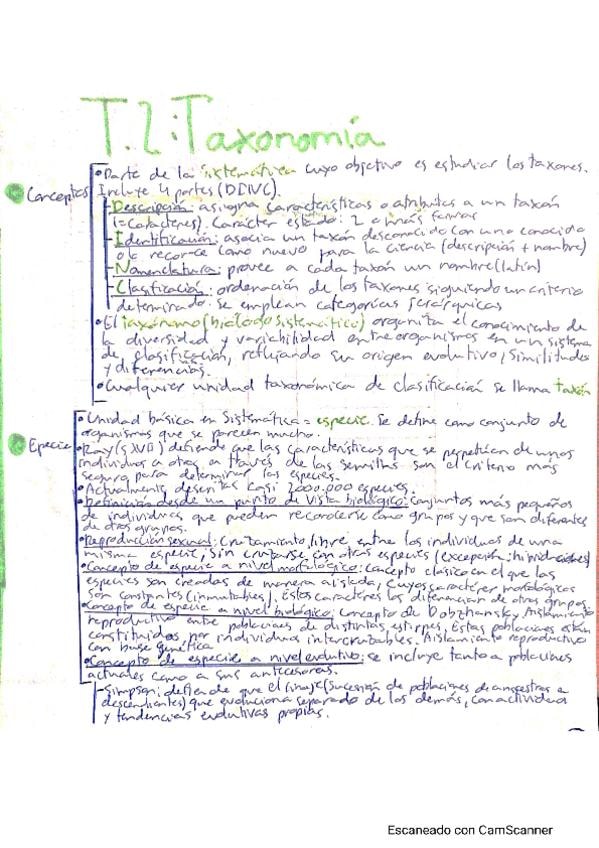 T.2: Taxonomía
• Parte de la sistemática cuyo objetivo es estudiar los taxones.
Conceptos Incluye 4 partes (DINC).
- Descripción: asigna características o atributos a un taxón
(=Caracteres). Carácter estado: 2 o más formas
- Identificación: asocia un taxón desconocido con uno conocido
o lo reconoce como nuevo para la ciencia (descripción + nombre)
- Nomenclatura: provee a cada taxón un nombre (latín)
- Clasificación: ordenación de los taxones siguiendo un criterio
determinado. Se emplean categorías jerárquicas
• El taxónomo (biólogo sistemático) organiza el conocimiento de
la diversidad y variabilidad entre organismos en un sistema
de clasificación, reflejando su origen evolutivo, similitudes
y diferencias.
• Cualquier unidad taxonómica de clasificación se llama taxón
• Unidad básica en Sistemática = especie. Se define como conjunto de
Epecie organismos que se parecen mucho.
• Ray (s XVII) defiende que las características que se perpetúan de unos
individuos a otros a través de las semillas son el criterio más
seguro para determinar las especies.
• Actualmente descritas casi 2000.000 especies.
• Definición desde un punto de vista biológico: conjuntos más pequeños
de individuos que pueden reconocerse como grupos y que son diferentes
de otros grupos.
• Reproducción sexual: cruzamiento libre entre los individuos de una
misma especie, sin cruzarse con otras especies (excepción: hibridaciones)
• Concepto de especie a nivel morfológico: concepto clásico en el que las
especies son creadas de manera aislada, cuyos caracteres morfológicos
son constantes (inmutables). Estos caracteres las diferencian de otros grupos
• Concepto de especie a nivel biológico: concepto de Dobzhansky. Aislamiento
reproductivo entre poblaciones de distintas estirpes. Estas poblaciones están
constituidas por individuos intercruzables. Aislamiento reproductivo
con base genética
• Concepto de especie a nivel evolutivo: se incluye tanto a poblaciones
actuales como a sus antecesoras.
- Simpson: defiende que el linaje (sucesión de poblaciones de ancestros a
descendientes) que evoluciona separado de los demás, con actividad
y tendencias evolutivas propias.
Escaneado con CamScanner